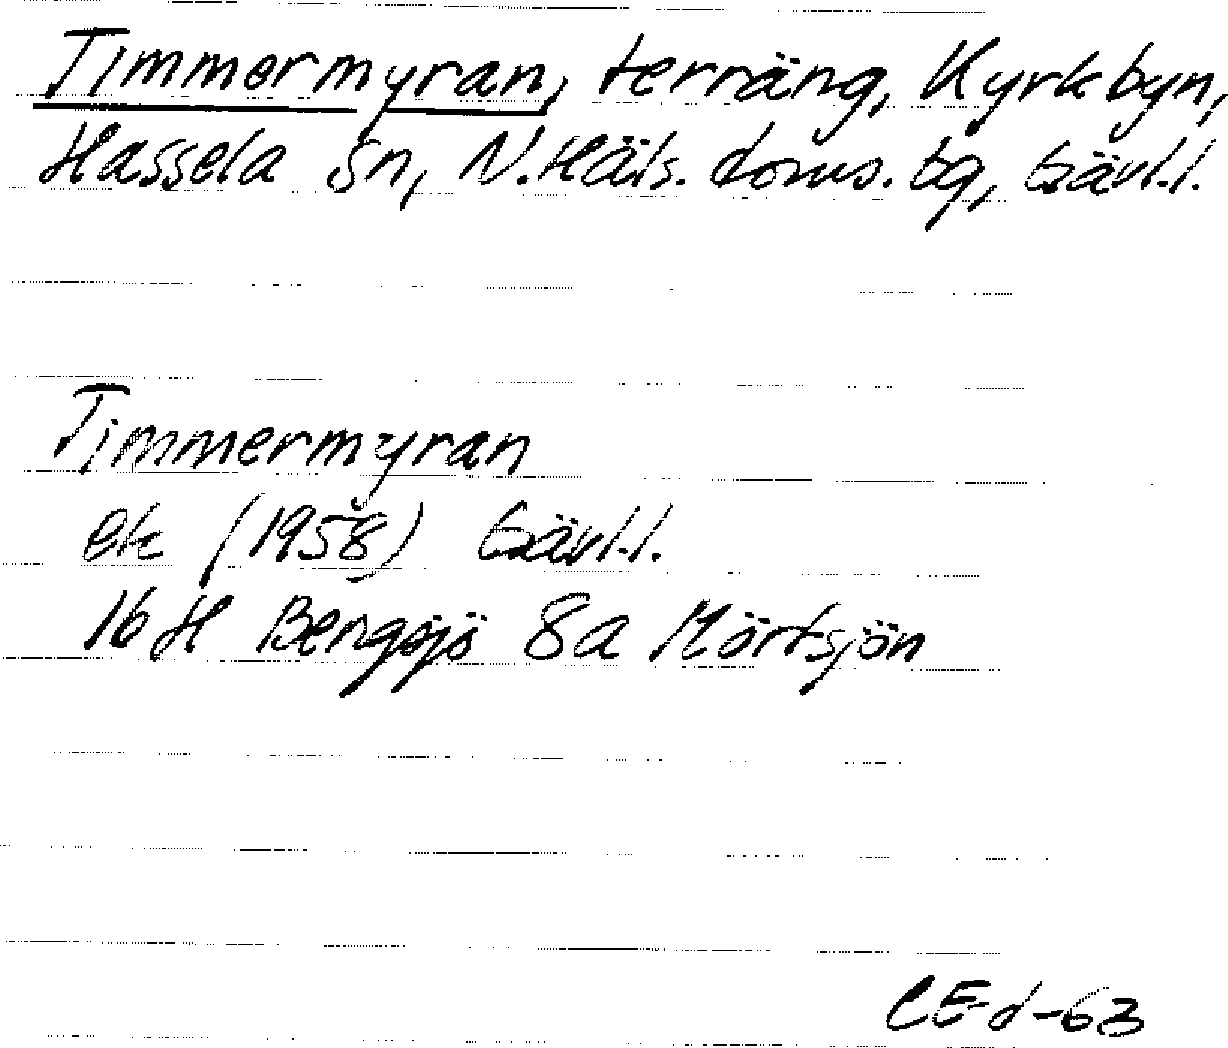 Timmermyran, terräng, Kyrkbyn,
Hassela sn, N.Häls. doms. tg, Gävl.l.
Timmermyran
ek (1958) Gävl.l.
16 H Bengsjö 8a Mörtsjön
CE-d-63